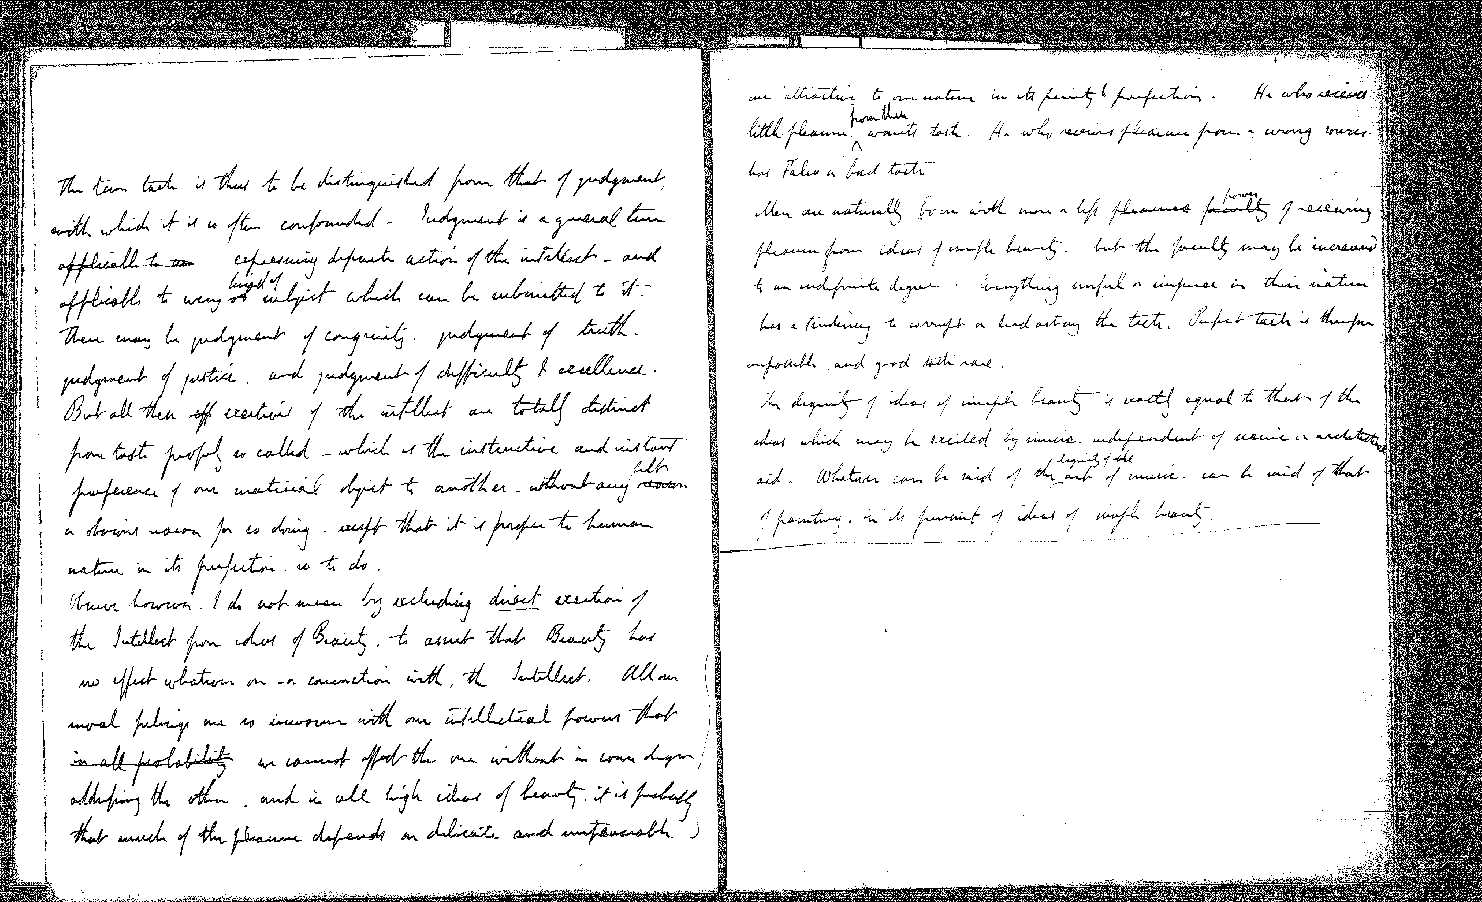 The term taste is thus to be distinguished from that of judgment,
with which it is so often confounded - Judgment is a general term
applicable to expressing definite action of the intellect - and
kind of
applicable to every subject which can be submitted to it -
There may be judgment of congruity. judgment of truth.
judgment of justice, and judgment of difficulty & excellence.
But all these exertions of the intellect are totally distinct
from taste properly so called - which is the instinctive and instant
preference of one material object to another - without any reason
or obvious reason for so doing - except that it is proper to human
nature in its perfection so to do.
Observe however. I do not mean by excluding direct exertion of
the Intellect from ideas of Beauty, to assert that Beauty has
no effect whatever on - or connection with, the Intellect. All our
moral feelings are so inwoven with our intellectual powers that
in all probability we cannot affect the one without in some degree
addressing the other, and in all high ideas of beauty, it is probably
that much of the pleasure depends on delicate and untraceable
are attractive to our nature in its purity & perfection. He who receives
from these
little pleasure wants taste. He who receives pleasure from a wrong source
has False or bad taste
power
Men are naturally born with more or less pleasures faculty of receiving
pleasure from ideas of simple beauty. but the faculty may be increased
to an indefinite degree. Everything sinful or impure in their nature
has a tendency to corrupt or lead astray the taste. Perfect taste is therefore
impossible, and good taste rare.
The dignity of ideas of simple beauty is exactly equal to that of the
ideas which may be excited by music independent of scenic or architectural
dignity of the
aid. Whatever can be said of the art of music - can be said of that
of painting, in its pursuit of ideas of simple beauty.